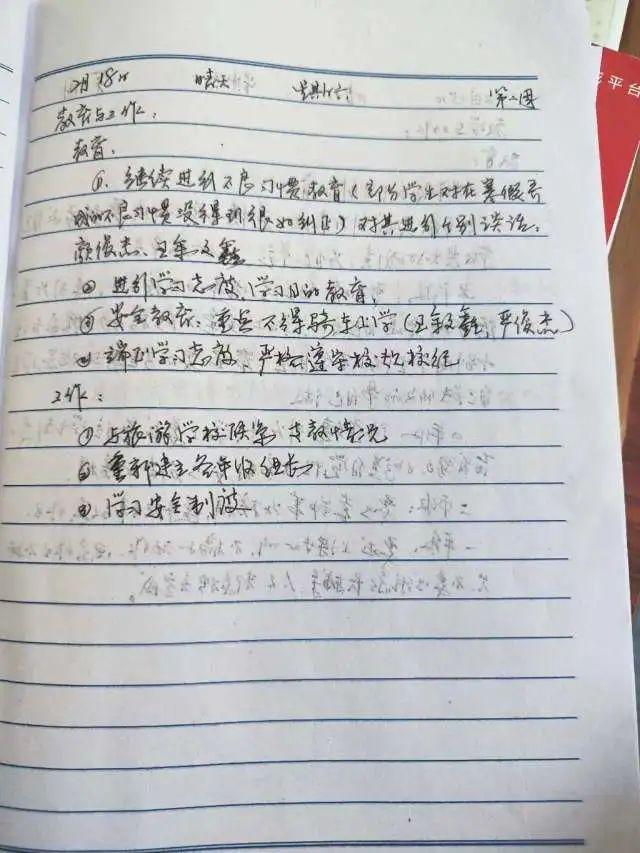 平台
2月18日 晴天 星期六 第二周
教育与工作:
教育:
①、继续进行不良习惯教育(部分学生对在寒假养
成的不良习惯没得到很好纠正)对其进行个别谈话:
颜俊杰、王毓鑫
② 进行学习态度、学习目的教育,
③ 安全教育:重点不得骑车上学(王毓鑫、严俊杰)
④ 端正学习态度、严格遵守校规校纪
工作:
① 与旅游学校联系支教情况
② 重新建立各年级组长
③ 学习安全制度